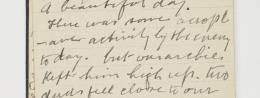 A beautiful day.
There was some aeropl-
-ane activity by the enemy
to day. but our archies
kept him high up. two
duds fell close to our